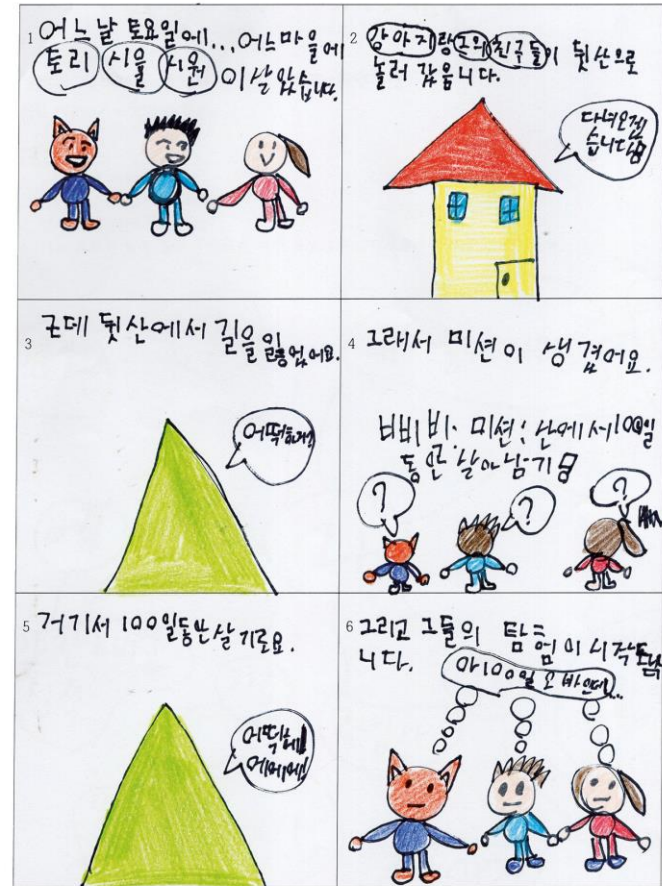 1 어느날 토요일에... 어느마을에
토리 시율 시원 이 살았습니다.
2 강아지랑 그의 친구들이 뒷산으로
놀러 갔읍니다.
다녀오겠
습니다
3 근데 뒷산에서 길을 잃었어요.
어떡하지?
4 그래서 미션이 생겼어요.
비비비. 미션: 산에서 100일
동안 살아남기
?
?
?
5 거기서 100일동안 살기로요.
어떡해
에에에!
6 그리고 그들의 탐험이 시작됩
니다.
아 100일은